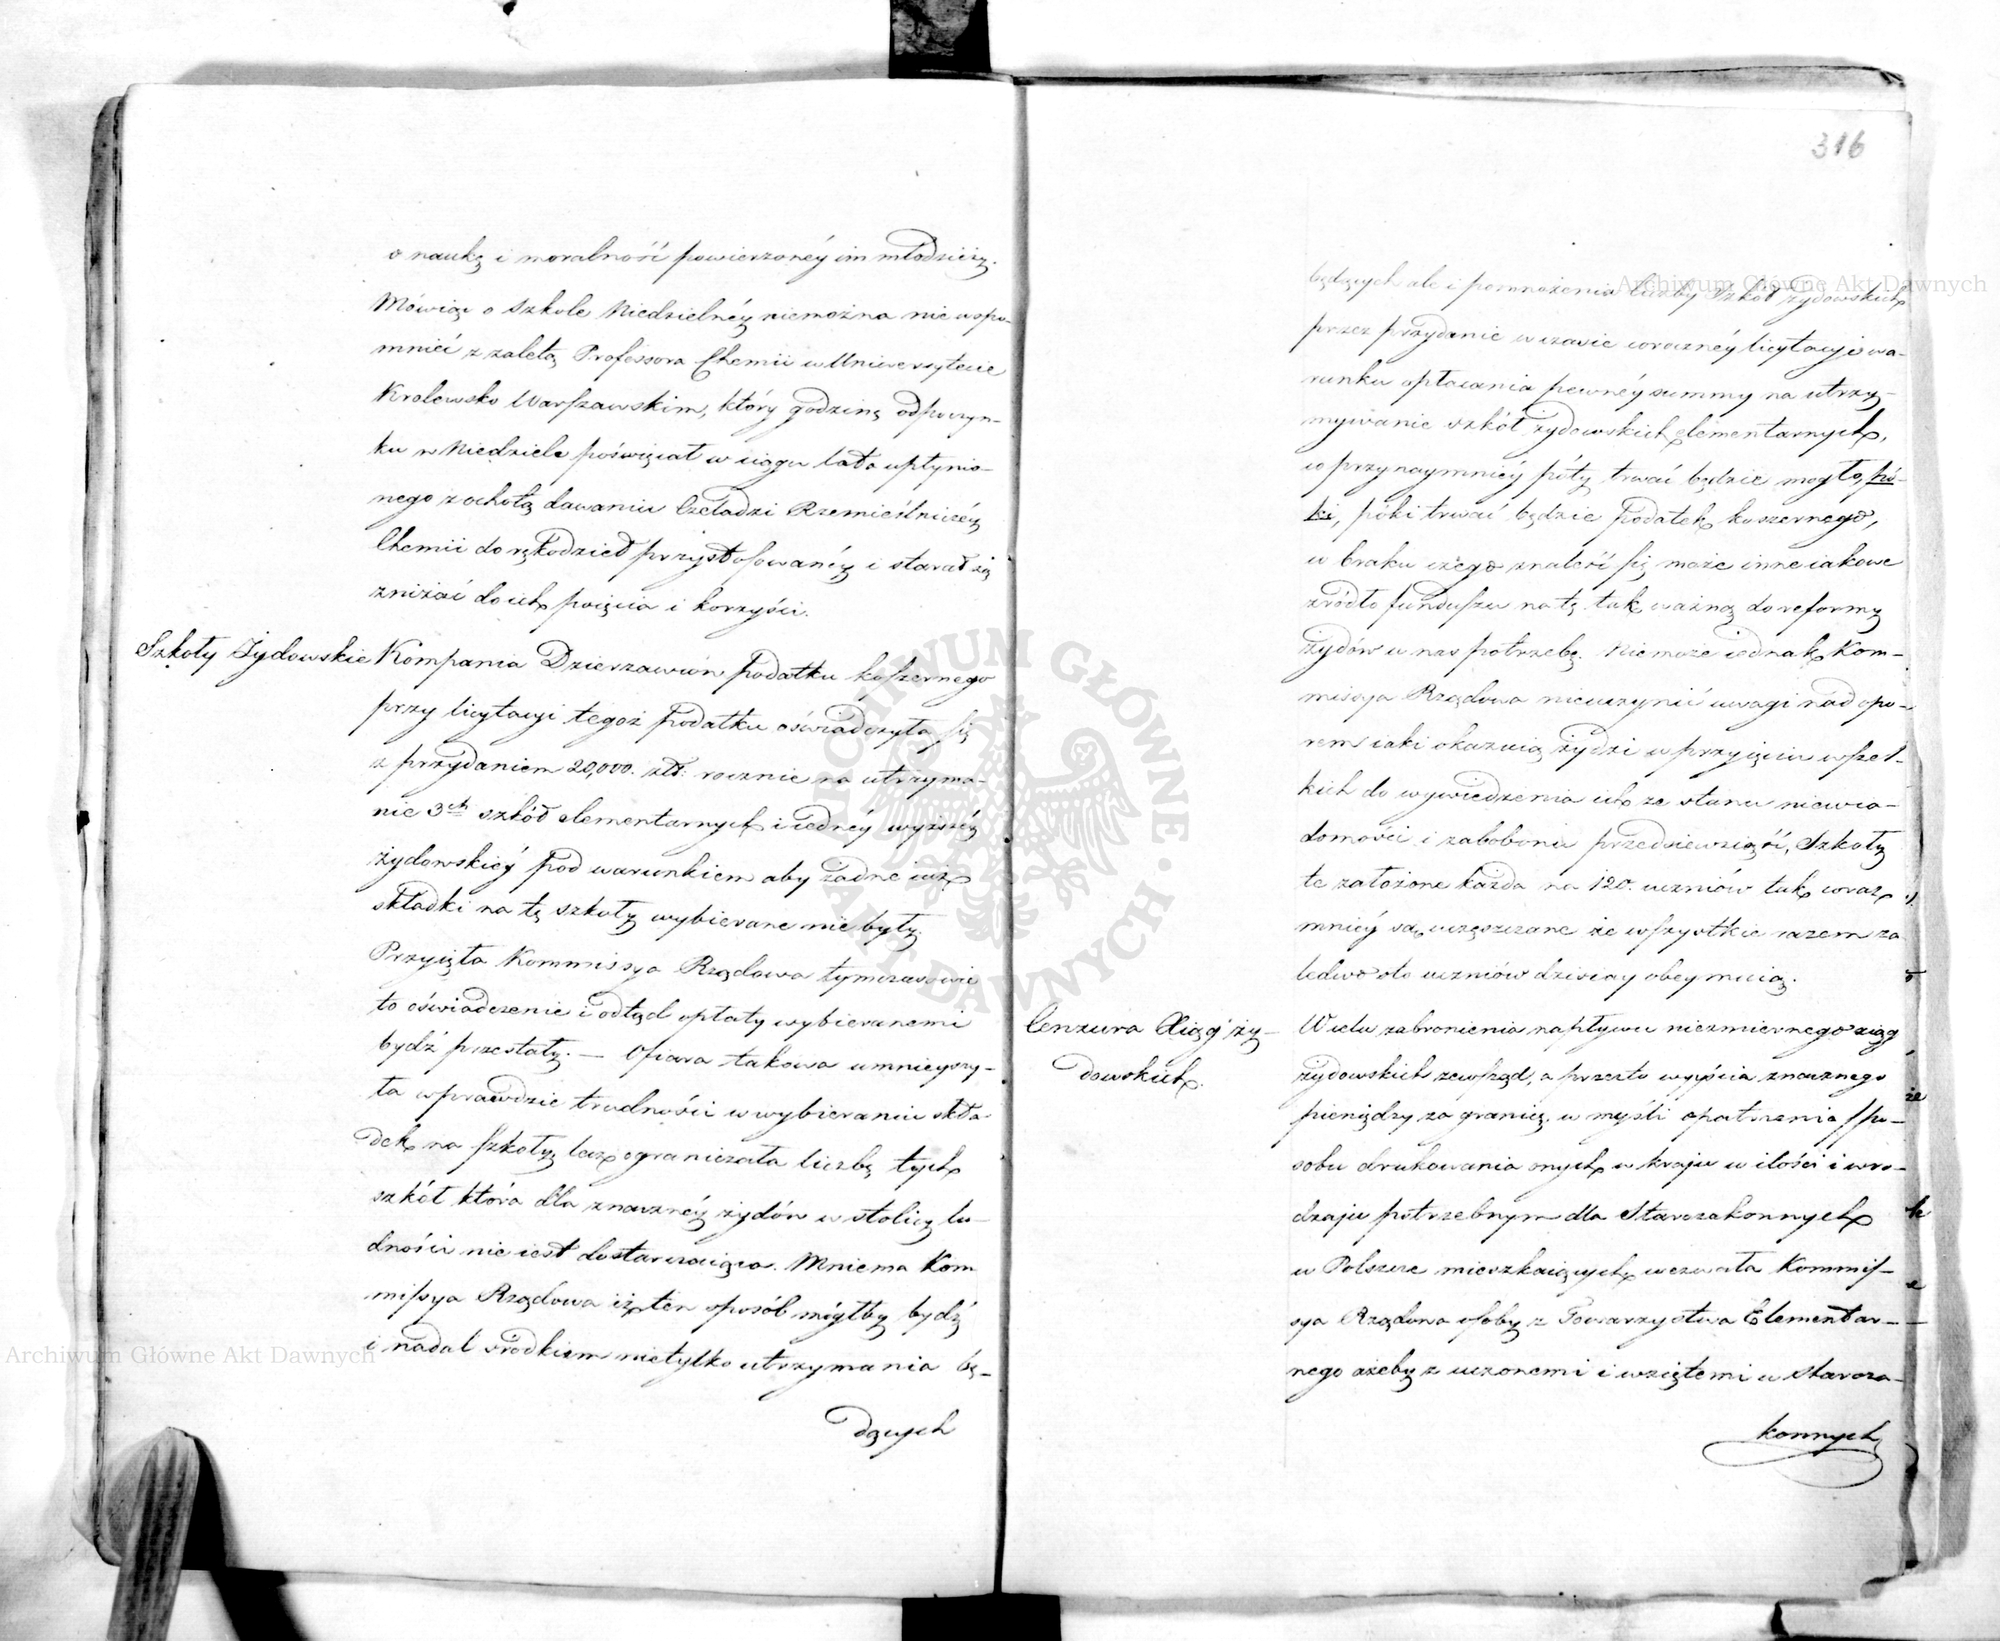 o naukę i moralność powierzonéy im młodzieży.
Mówiąc o Szkole Niedzielnéy niemożna nie wspo-
mnieć z zaletą Professora Chemii w Uniwersytecie
Królewsko Warszawskim, który godzinę odpoczyn-
ku w Niedziele poświęcał w ciągu lata upłynio-
nego z ochotą dawaniu Czeladzi Rzemieślniczéy
Chemii do rękodzieł przystosowanéy i starał się
zniżać do ich pojęcia i korzyści.
Szkoły Żydowskie
Kompania Dzierżawców podatku koszernego
przy licytacyi tegoż podatku oświadczyła się
z przydaniem 20,000. złt: rocznie na utrzyma-
nie 3ch szkół elementarnych i iednéy wyższéy
żydowskiéy pod warunkiem aby żadne iuż
składki na tę szkoły wybierane nie były.
Przyięła Kommissya Rządowa tymczasowie
to oświadczenie i odtąd opłaty wybieranemi
bydź przestały. — Ofiara takowa umnieyszy-
ła wprawdzie trudności w wybieraniu skła-
dek na szkoły lecz ograniczała liczbę tych
szkół która dla znacznéy żydów w stolicy lu-
dności nie iest dostarczaiąca. Mniema Kom
missya Rządowa iż ten sposób mógłby bydź
i nadal środkiem nietylko utrzymania bę-
dących
316
będących ale i pomnożenia liczby Szkół żydowskich
przez przydanie w czasie corocznéy licytacyi wa-
runku opłacania pewnéy summy na utrzy-
mywanie szkół żydowskich elementarnych,
co przynaymniéy póty trwać będzie mogło, pó-
ki, póki trwać będzie podatek koszernego,
w braku czego znaleść się może inne iakowe
źródło funduszu na tę tak ważną do reformy
żydów u nas potrzebę. Nie może iednak Kom-
missya Rządowa nieuczynić uwagi nad opo-
rem iaki okazuią żydzi w przyięciu wszel-
kich do wywiedzenia ich ze stanu niewia-
domości i zabobonu przedsiewzięć, Szkoły
te założone każda na 120. uczniów tak coraz
mniéy są uczęszczane że wszystkie razem za
ledwo sto uczniów dzisiay obeymuią.
Cenzura Xiąg ży-
dowskich.
W celu zabronienia napływu niezmiernego xiąg
żydowskich zewsząd, a przezto wyyścia znacznego
pieniędzy za granicę w myśli opatrzenia spo-
sobu drukowania onych w kraju w ilości i wro-
dzaju potrzebnym dla Starozakonnych
w Polszcze mieszkaiących wezwała Kommis-
sya Rządowa osoby z Towarzystwa Elementar-
nego ażeby z uczonemi i wziętemi u staroza-
konnych
Archiwum Główne Akt Dawnych
Archiwum Główne Akt Dawnych
ARCHIWUM GŁÓWNE · AKT DAWNYCH ·